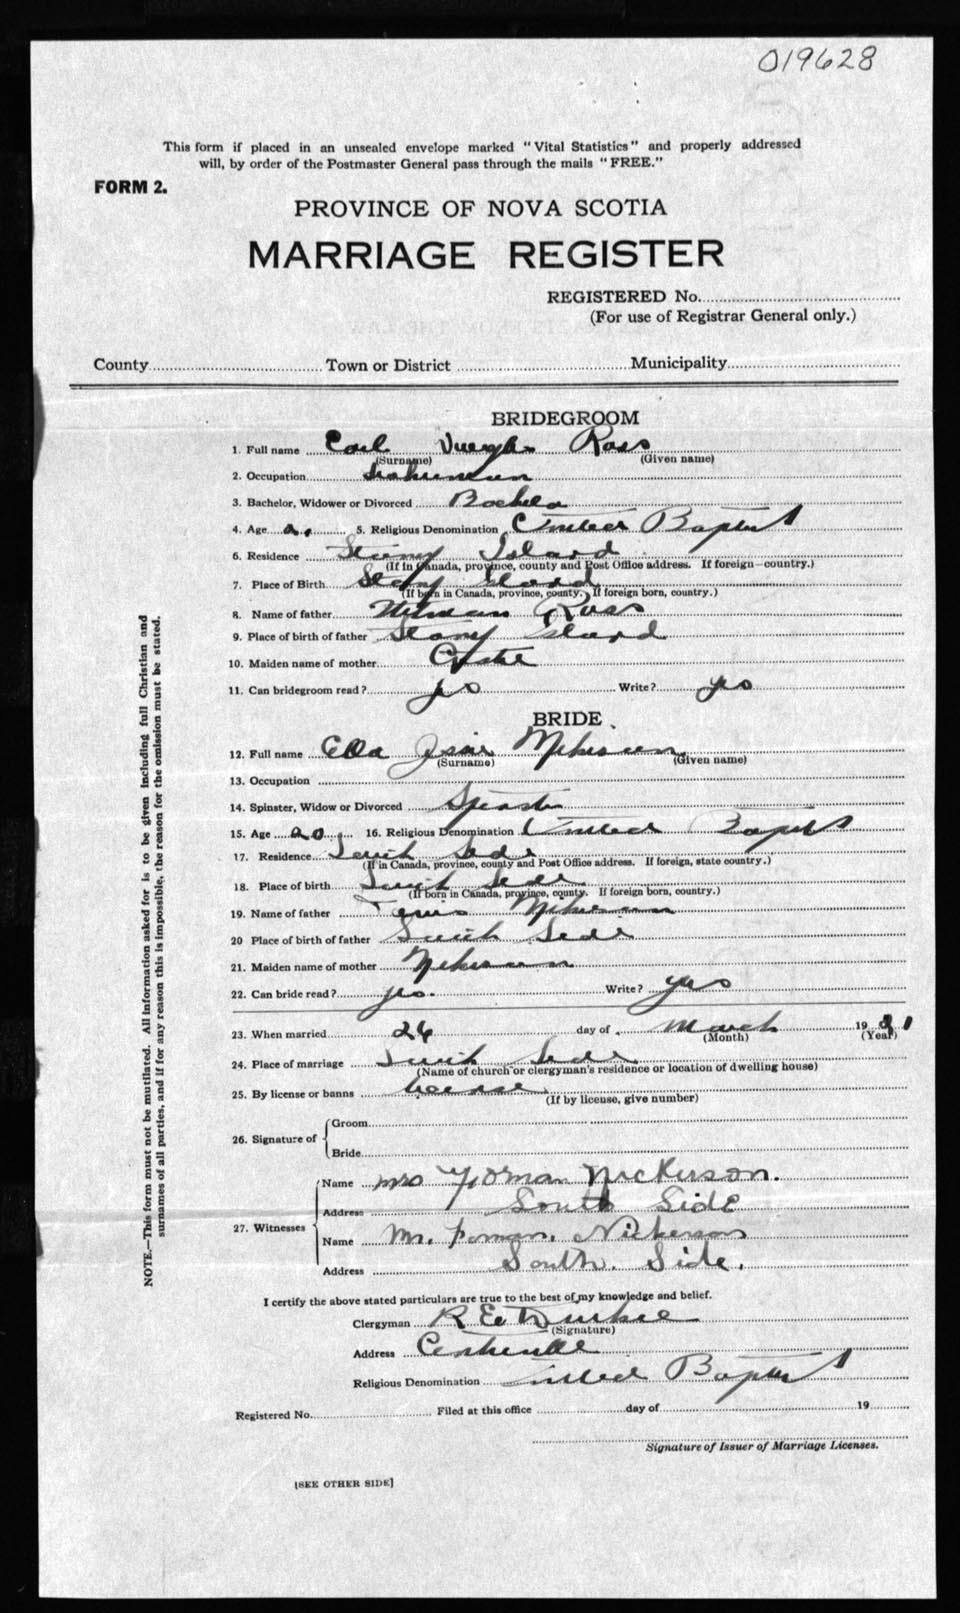 019628
This form if placed in an unsealed envelope marked "Vital Statistics" and properly addressed
will, by order of the Postmaster General pass through the mails "FREE."
FORM 2.
PROVINCE OF NOVA SCOTIA
MARRIAGE REGISTER
REGISTERED No.
(For use of Registrar General only.)
County Town or District Municipality
BRIDEGROOM
1. Full name Ross
(Surname) (Given name)
2. Occupation
3. Bachelor, Widower or Divorced Bachelor
4. Age 5. Religious Denomination United Baptist
6. Residence Stony Island
(If in Canada, province, county and Post Office address. If foreign—country.)
7. Place of Birth Stony Island
(If born in Canada, province, county. If foreign born, country.)
8. Name of father Ross
9. Place of birth of father Stony Island
10. Maiden name of mother
11. Can bridegroom read? yes Write? yes
BRIDE
12. Full name Ella Nickerson
(Surname) (Given name)
13. Occupation
14. Spinster, Widow or Divorced Spinster
15. Age 20 16. Religious Denomination United Baptist
17. Residence South Side
(If in Canada, province, county and Post Office address. If foreign, state country.)
18. Place of birth South Side
(If born in Canada, province, county. If foreign born, country.)
19. Name of father Nickerson
20 Place of birth of father South Side
21. Maiden name of mother Nickerson
22. Can bride read? yes. Write? yes
23. When married 26 day of March 1931
(Month) (Year)
24. Place of marriage South Side
(Name of church or clergyman's residence or location of dwelling house)
25. By license or banns License
(If by license, give number)
26. Signature of Groom
Bride
27. Witnesses
Name Mrs Foman Nickerson.
Address South Side
Name Mr. Foman. Nickerson
Address South. Side.
I certify the above stated particulars are true to the best of my knowledge and belief.
Clergyman R E Durkee
(Signature)
Address Centreville
Religious Denomination United Baptist
Registered No. Filed at this office day of 19
Signature of Issuer of Marriage Licenses.
[SEE OTHER SIDE]
NOTE.—This form must not be mutilated. All information asked for is to be given including full Christian and
surnames of all parties, and if for any reason this is impossible, the reason for the omission must be stated.